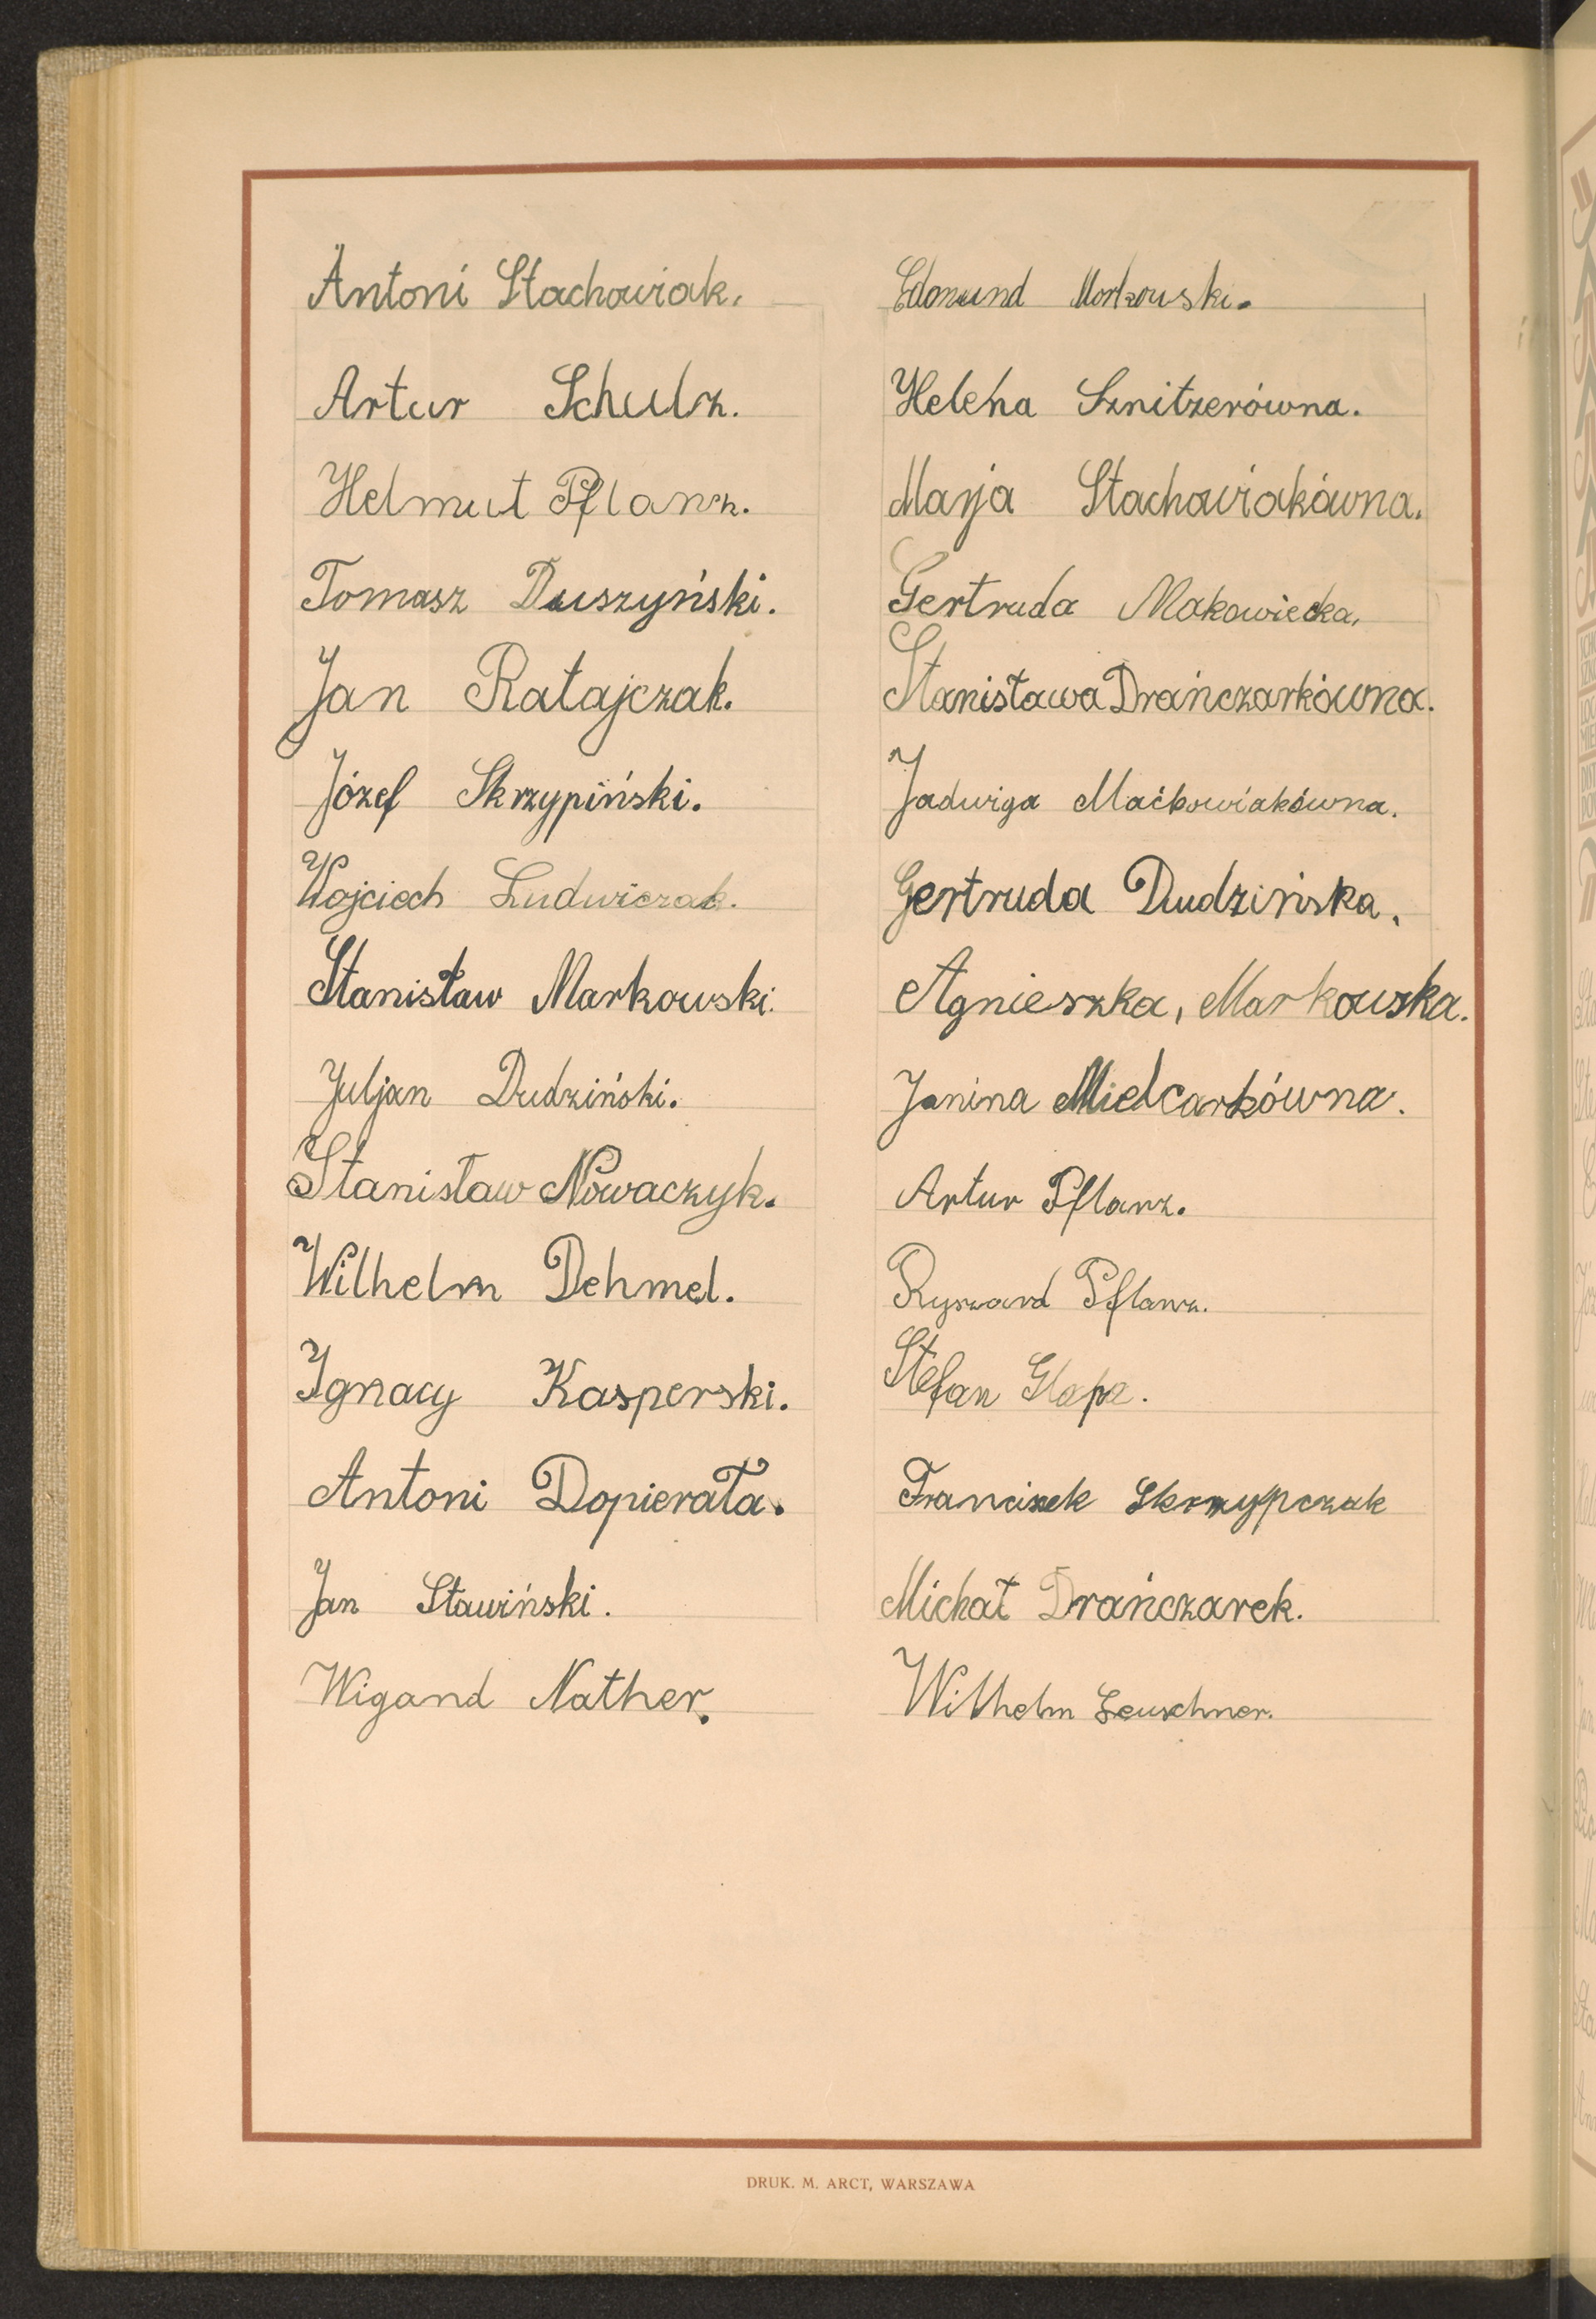 Antoni Stachowiak.
Artur Schulz.
Helmut Pflanz.
Tomasz Duszyński.
Jan Ratajczak.
Józef Skrzypiński.
Wojciech Ludwiczak.
Stanisław Markowski.
Juljan Dudziński.
Stanisław Nowaczyk.
Wilhelm Dehmel.
Ignacy Kasperski.
Antoni Dopierała.
Jan Stawiński.
Wigand Nather.
Edmund
Helena Sznitzerówna.
Marja Stachowiakówna.
Gertruda Makowiecka.
Stanisława Drańczarkówna.
Jadwiga Maćkowiakówna.
Gertruda Dudzińska.
Agnieszka, Markowska.
Janina Mielcarkówna.
Artur Pflanz.
Ryszard Pflanz.
Stefan Glapa.
Franciszek Skrzypczak
Michał Drańczarek.
Wilhelm Leuschner.
DRUK. M. ARCT, WARSZAWA